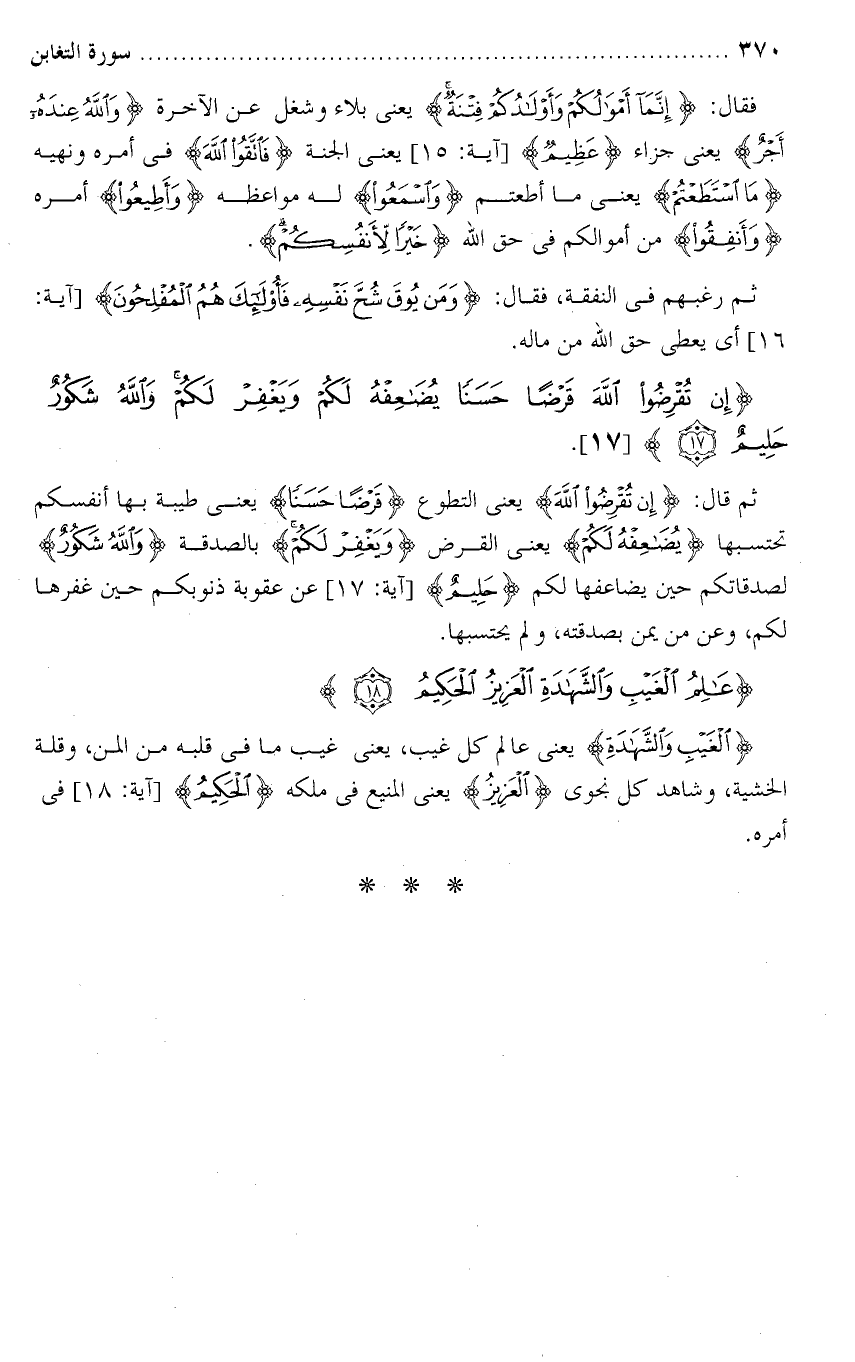 ٣٧٠ ........................................................................ سورة التغابن
فقال: ﴿إِنَّمَآ أَمْوَٰلُكُمْ وَأَوْلَٰدُكُمْ فِتْنَةٌۚ﴾ يعنى بلاء وشغل عن الآخرة ﴿وَٱللَّهُ عِندَهُۥٓ
أَجْرٌ﴾ يعنى جزاء ﴿عَظِيمٌ﴾ [آية: ١٥] يعنى الجنة ﴿فَٱتَّقُوا۟ ٱللَّهَ﴾ فى أمره ونهيه
﴿مَا ٱسْتَطَعْتُمْ﴾ يعنى ما أطعتم ﴿وَٱسْمَعُوا۟﴾ له مواعظه ﴿وَأَطِيعُوا۟﴾ أمره
﴿وَأَنفِقُوا۟﴾ من أموالكم فى حق الله ﴿خَيْرًا لِّأَنفُسِكُمْۗ﴾.
ثم رغبهم فى النفقة، فقال: ﴿وَمَن يُوقَ شُحَّ نَفْسِهِۦ فَأُو۟لَٰٓئِكَ هُمُ ٱلْمُفْلِحُونَ﴾ [آية:
١٦] أى يعطى حق الله من ماله.
﴿إِن تُقْرِضُوا۟ ٱللَّهَ قَرْضًا حَسَنًا يُضَٰعِفْهُ لَكُمْ وَيَغْفِرْ لَكُمْۚ وَٱللَّهُ شَكُورٌ
حَلِيمٌ ١٧ ﴾ [١٧].
ثم قال: ﴿إِن تُقْرِضُوا۟ ٱللَّهَ﴾ يعنى التطوع ﴿قَرْضًا حَسَنًا﴾ يعنى طيبة بها أنفسكم
تحتسبها ﴿يُضَٰعِفْهُ لَكُمْ﴾ يعنى القرض ﴿وَيَغْفِرْ لَكُمْۚ﴾ بالصدقة ﴿وَٱللَّهُ شَكُورٌ﴾
لصدقاتكم حين يضاعفها لكم ﴿حَلِيمٌ﴾ [آية: ١٧] عن عقوبة ذنوبكم حين غفرها
لكم، وعن من يمن بصدقته، ولم يحتسبها.
﴿عَٰلِمُ ٱلْغَيْبِ وَٱلشَّهَٰدَةِ ٱلْعَزِيزُ ٱلْحَكِيمُ ١٨ ﴾
﴿ٱلْغَيْبِ وَٱلشَّهَٰدَةِ﴾ يعنى عالم كل غيب، يعنى غيب ما فى قلبه من المن، وقلة
الخشية، وشاهد كل نجوى ﴿ٱلْعَزِيزُ﴾ يعنى المنيع فى ملكه ﴿ٱلْحَكِيمُ﴾ [آية: ١٨] فى
أمره.
* * *